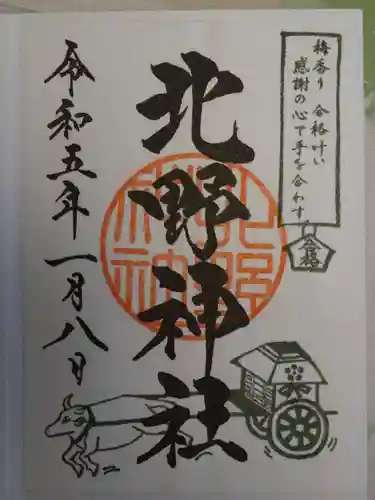 梅香り 合格叶い
感謝の心で手を合わす
合格
北野神社
北野神社
令和五年一月八日